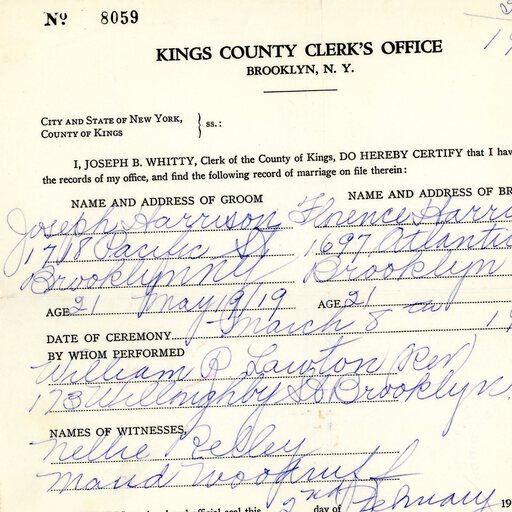 No 8059
KINGS COUNTY CLERK'S OFFICE
BROOKLYN, N. Y.
CITY AND STATE OF NEW YORK,
COUNTY OF KINGS
ss.:
I, JOSEPH B. WHITTY, Clerk of the County of Kings, DO HEREBY CERTIFY that I hav
the records of my office, and find the following record of marriage on file therein:
NAME AND ADDRESS OF GROOM NAME AND ADDRESS OF BR
Joseph Harrison Florence Harri
1718 Pacific St 1697 Atlantic
Brooklyn NY Brooklyn
AGE 21 May 19/19 AGE 21
DATE OF CEREMONY March 8 th 19
BY WHOM PERFORMED
William P Lawton Rev
173 Willoughby St Brooklyn
NAMES OF WITNESSES,
Nellie Kelley
Maud Woodruff
official seal this 2nd day of February 19